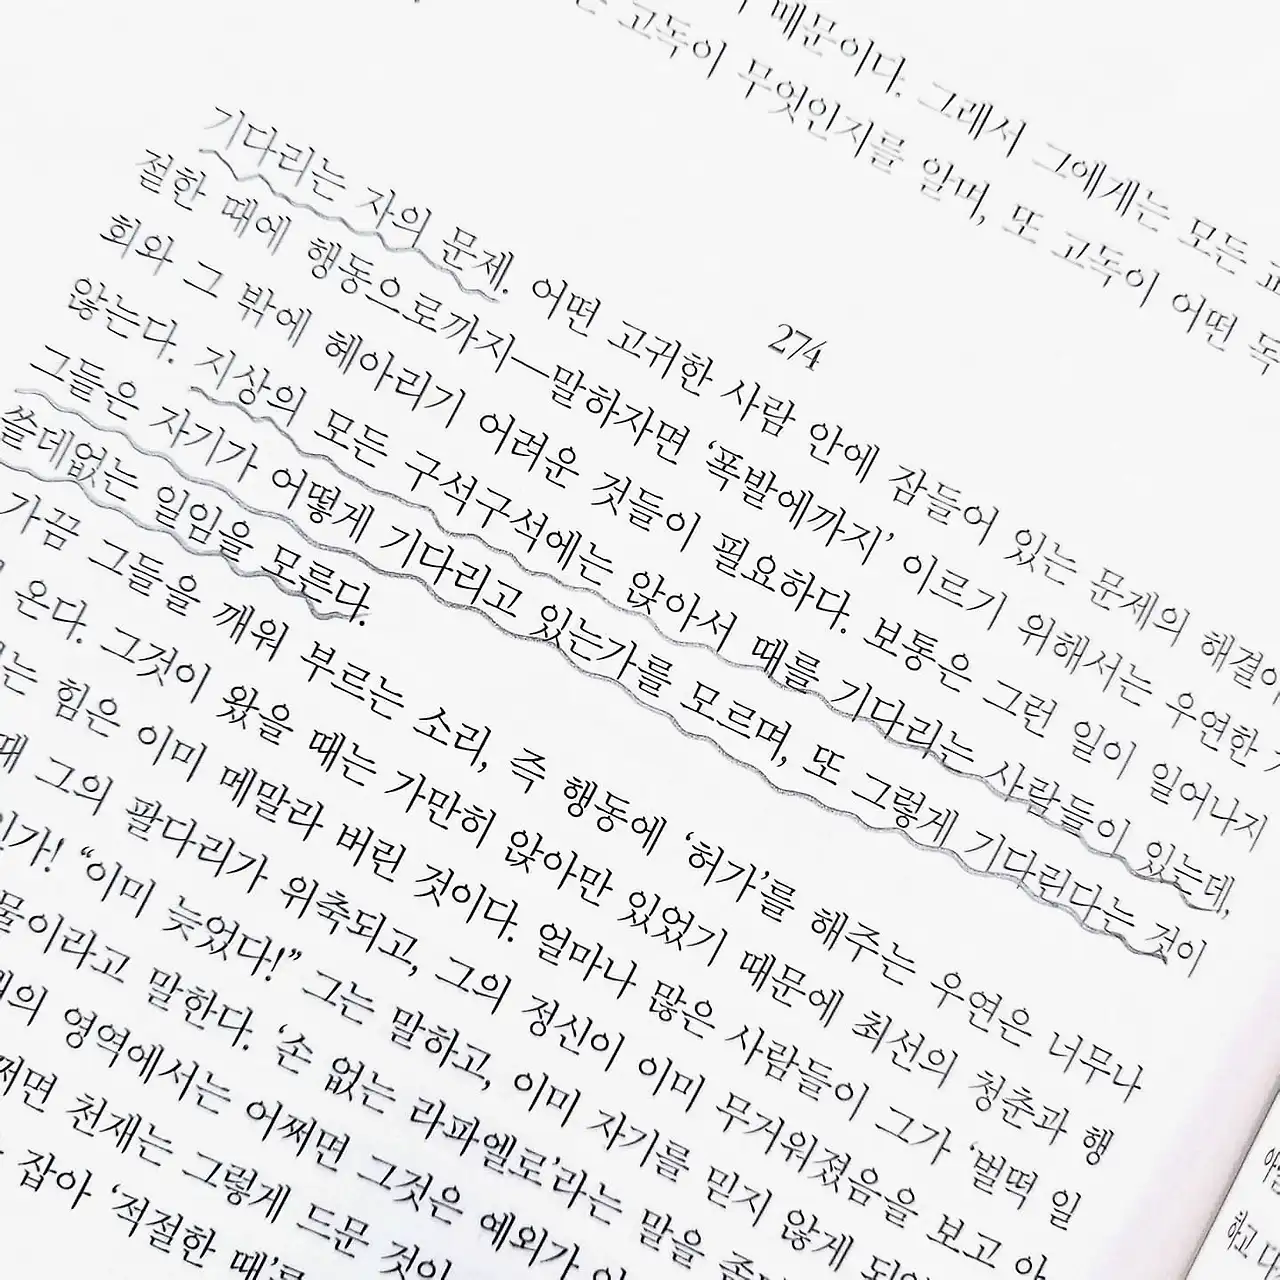 때문이다. 그래서 그에게는 모든
고독이 무엇인지를 알며, 또 고독이 어떤 독
274
기다리는 자의 문제. 어떤 고귀한 사람 안에 잠들어 있는 문제의 해결이
절한 때에 행동으로까지—말하자면 ‘폭발에까지’ 이르기 위해서는 우연한
회와 그 밖에 헤아리기 어려운 것들이 필요하다. 보통은 그런 일이 일어나지
않는다. 지상의 모든 구석구석에는 앉아서 때를 기다리는 사람들이 있는데,
그들은 자기가 어떻게 기다리고 있는가를 모르며, 또 그렇게 기다린다는 것이
쓸데없는 일임을 모른다.
가끔 그들을 깨워 부르는 소리, 즉 행동에 ‘허가’를 해주는 우연은 너무나
온다. 그것이 왔을 때는 가만히 앉아만 있었기 때문에 최선의 청춘과 행
는 힘은 이미 메말라 버린 것이다. 얼마나 많은 사람들이 그가 ‘벌떡 일
때 그의 팔다리가 위축되고, 그의 정신이 이미 무거워졌음을 보고 아
인가! “이미 늦었다!” 그는 말하고, 이미 자기를 믿지 않게
물이라고 말한다. ‘손 없는 라파엘로’라는 말을
의 영역에서는 어쩌면 그것은 예외가
쩌면 천재는 그렇게 드문 것이
잡아 ‘적절한 때’로
하고